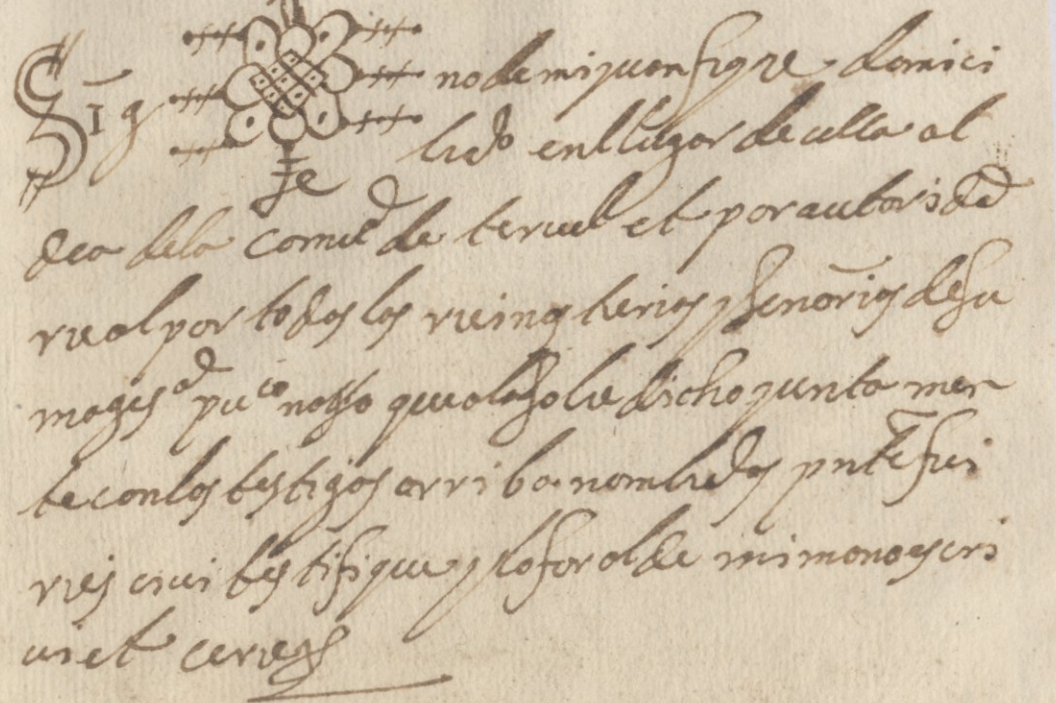 Sig no de mi juan figre domici
liado en el lugar de ulla al
dea dela comud de teruel et por autoridad
real por todos los reinos tierras y señorios de su
magesd puco notto que a lo sobre dicho junta men
te con los testigos arriba nombrados pnte fui
testifique y lo foral de mi mano escri
ui et cerre